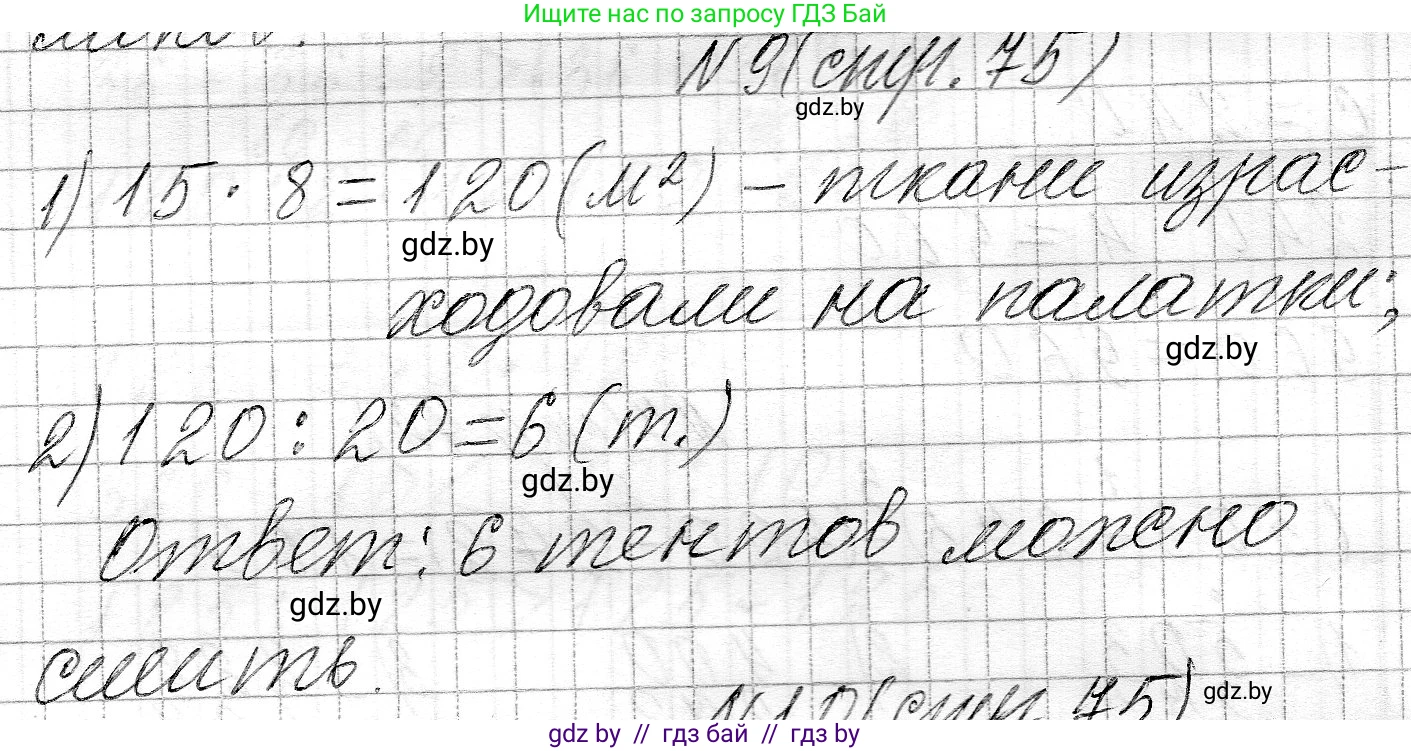 Ищите нас по запросу ГДЗ Бай
N9(стр. 75)
gdz.by
1) 15 · 8 = 120 (м²) – ткани израс-
gdz.by
ходовали на палатки;
gdz.by
2) 120 : 20 = 6 (т.)
gdz.by
Ответ: 6 тентов можно
gdz.by
сшить.
N10(стр. 75)
gdz.by
gdz by // гдз бай // гдз by